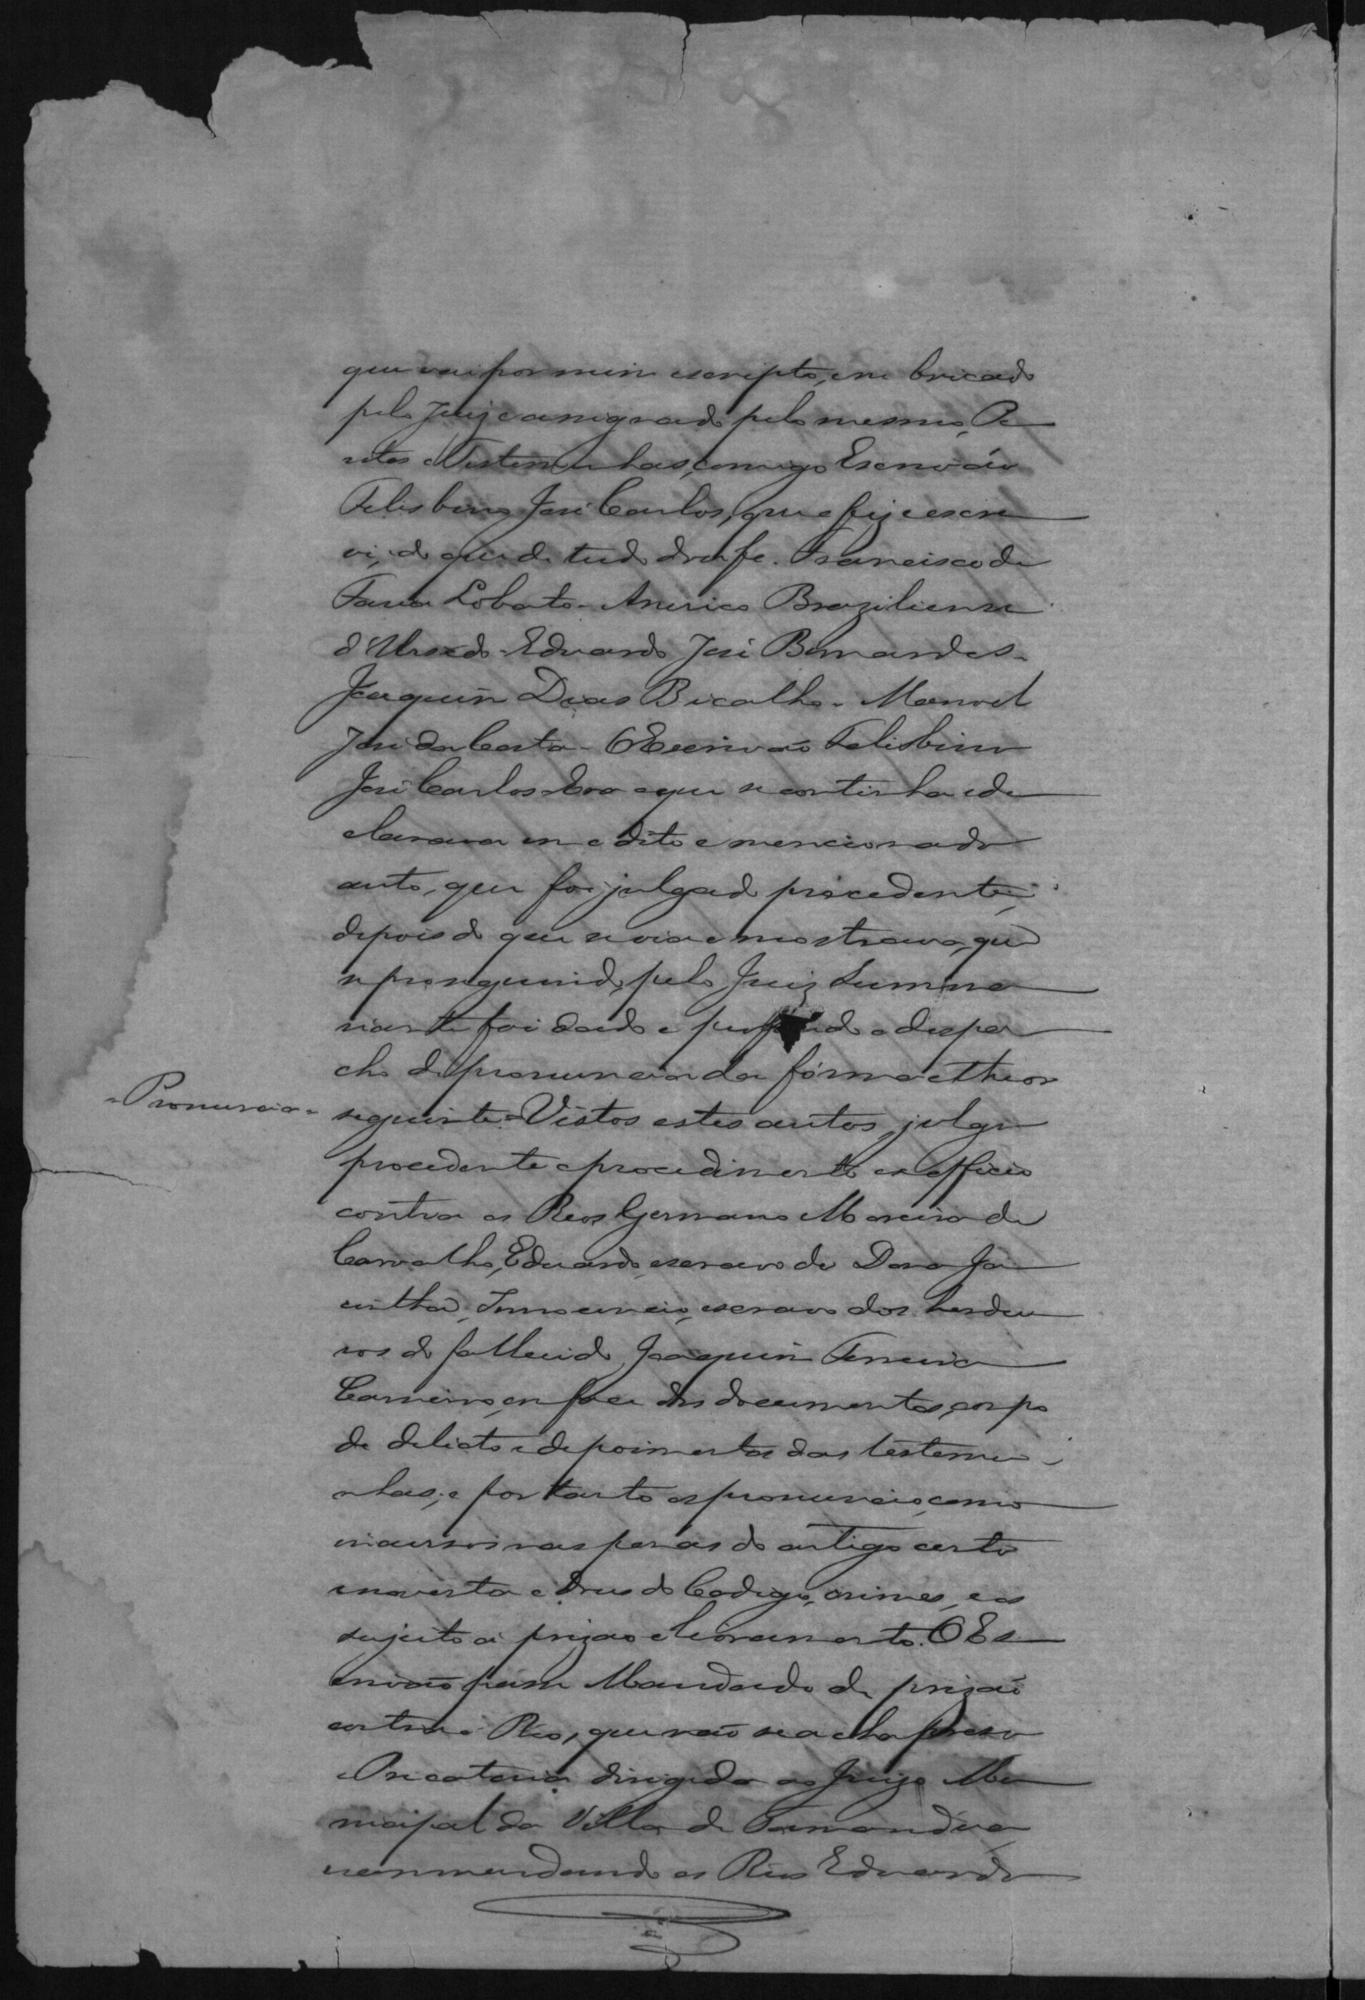 que vai por mim escripto, e ru bricado
pelo Juiz e assignado pelo mesmo, Pe
ritos e Testemunhas, comigo Escrivão
Felisbino José Carlos, que o fiz e escre
vi, do que de tudo dou fe. Francisco de
Faria Lobato - Americo Braziliense
d'Urzedo - Eduardo José Bernardes -
Joaquim Dias Bicalho - Manoel
José da Costa - O Escrivão Felisbino
José Carlos - Era o que se continha e de
clarava em o dito e mencionado
auto, que foi julgado procedente,
depois do que se via e mostrava, que
se proseguindo pelo Juiz Summa
riante foi dado e proferido o despa
cho de pronuncia da fórma e theor
- Pronuncia -
seguinte = Vistos estes autos, julgo
procedente o procedimento ex officio
contra os Reos Germano Moreira de
Carvalho, Eduardo, escravo de Dona Ja
cintha, Innocencio, escravo dos herdei
ros do fallecido Joaquim Ferreira
Carneiro, em face dos documentos, corpo
de delicto e depoimentos das testemu
nhas; e portanto os pronuncio, como
incursos nas penas do artigo cento
e noventa e dous do Codigo, crimes, e os
sujeito a prizão e livramento. O Es
crivão passe Mandado de prizão
contra o Reo, que não se acha preso
e Precatoria dirigida ao Juizo Mu
nicipal da Villa de Tamanduá
recommendando os Reos Eduardo